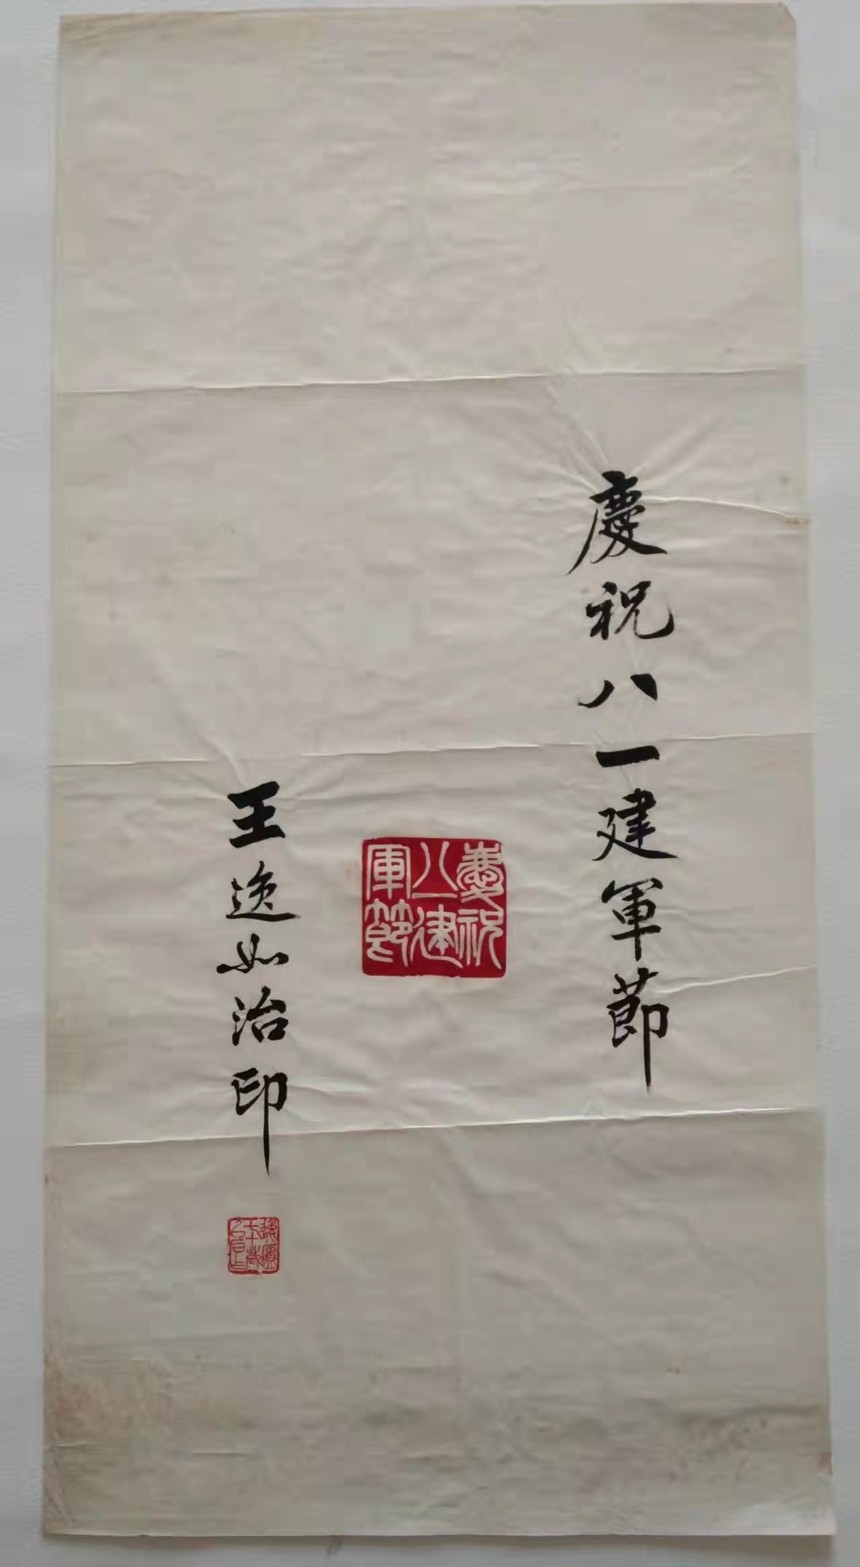 慶祝八一建軍節
慶祝
八一建
軍節
王逸如治印